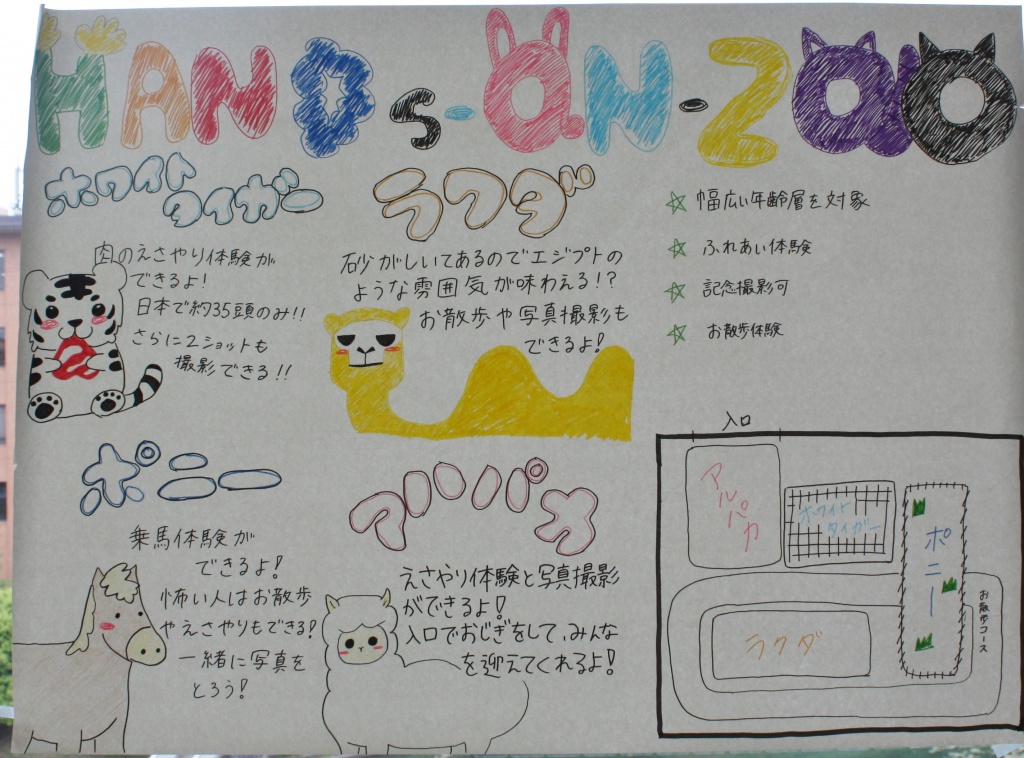 HANDs-ON-ZOO
ホワイト
タイガー
肉のえさやり体験が
できるよ!
日本で約35頭のみ!!
さらに2ショットも
撮影できる!!
ラクダ
砂がしいてあるのでエジプトの
ような雰囲気が味わえる!?
お散歩や写真撮影も
できるよ!
☆ 幅広い年齢層を対象
☆ ふれあい体験
☆ 記念撮影可
☆ お散歩体験
ポニー
乗馬体験が
できるよ!
怖い人はお散歩
やえさやりもできる!
一緒に写真を
とろう!
アルパカ
えさやり体験と写真撮影
ができるよ!
入口でおじぎをして、みんな
を迎えてくれるよ!
入口
アルパカ
ホワイト
タイガー
ポニー
ラクダ
お散歩コース